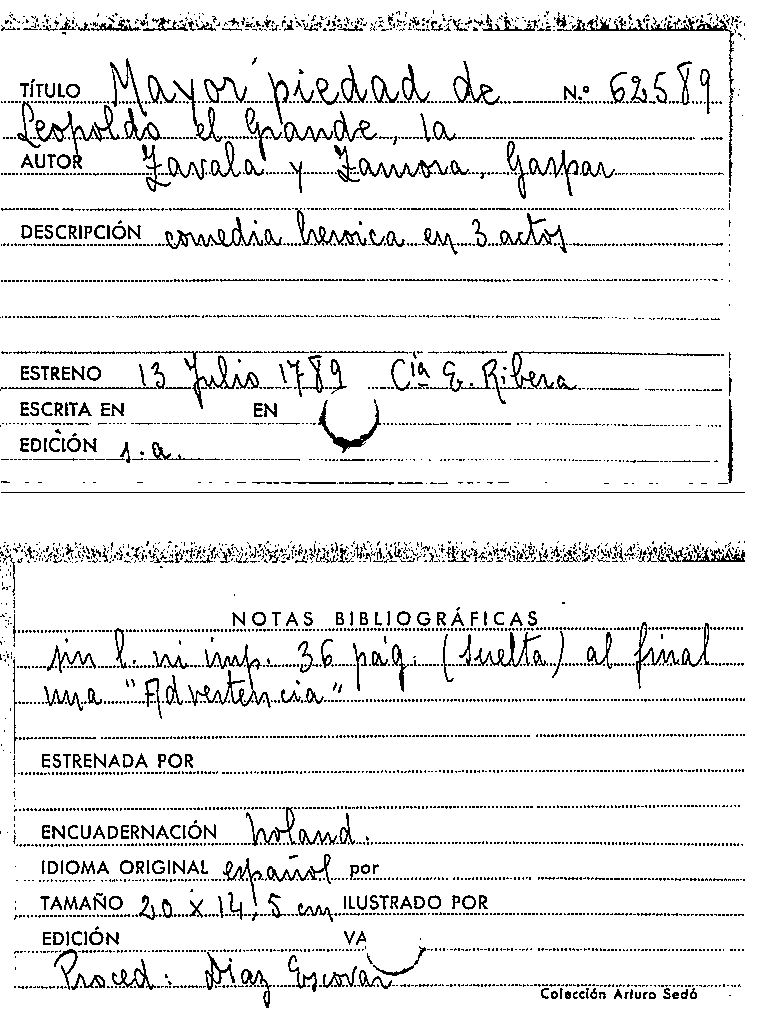 TÍTULO Mayor piedad de N.º 62589
Leopoldo el Grande, la
AUTOR Zavala y Zamora, Gaspar
DESCRIPCIÓN comedia heroica en 3 actos
ESTRENO 13 Julio 1789 Cía E. Ribera
ESCRITA EN EN
EDICIÓN s.a.
NOTAS BIBLIOGRÁFICAS
sin l. ni imp. 36 pág. (suelta) al final
una "Advertencia"
ESTRENADA POR
ENCUADERNACIÓN holand.
IDIOMA ORIGINAL español por
TAMAÑO 20 x 14,5 cm ILUSTRADO POR
EDICIÓN VA
Proced: Diaz Escovar
Colección Arturo Sedó